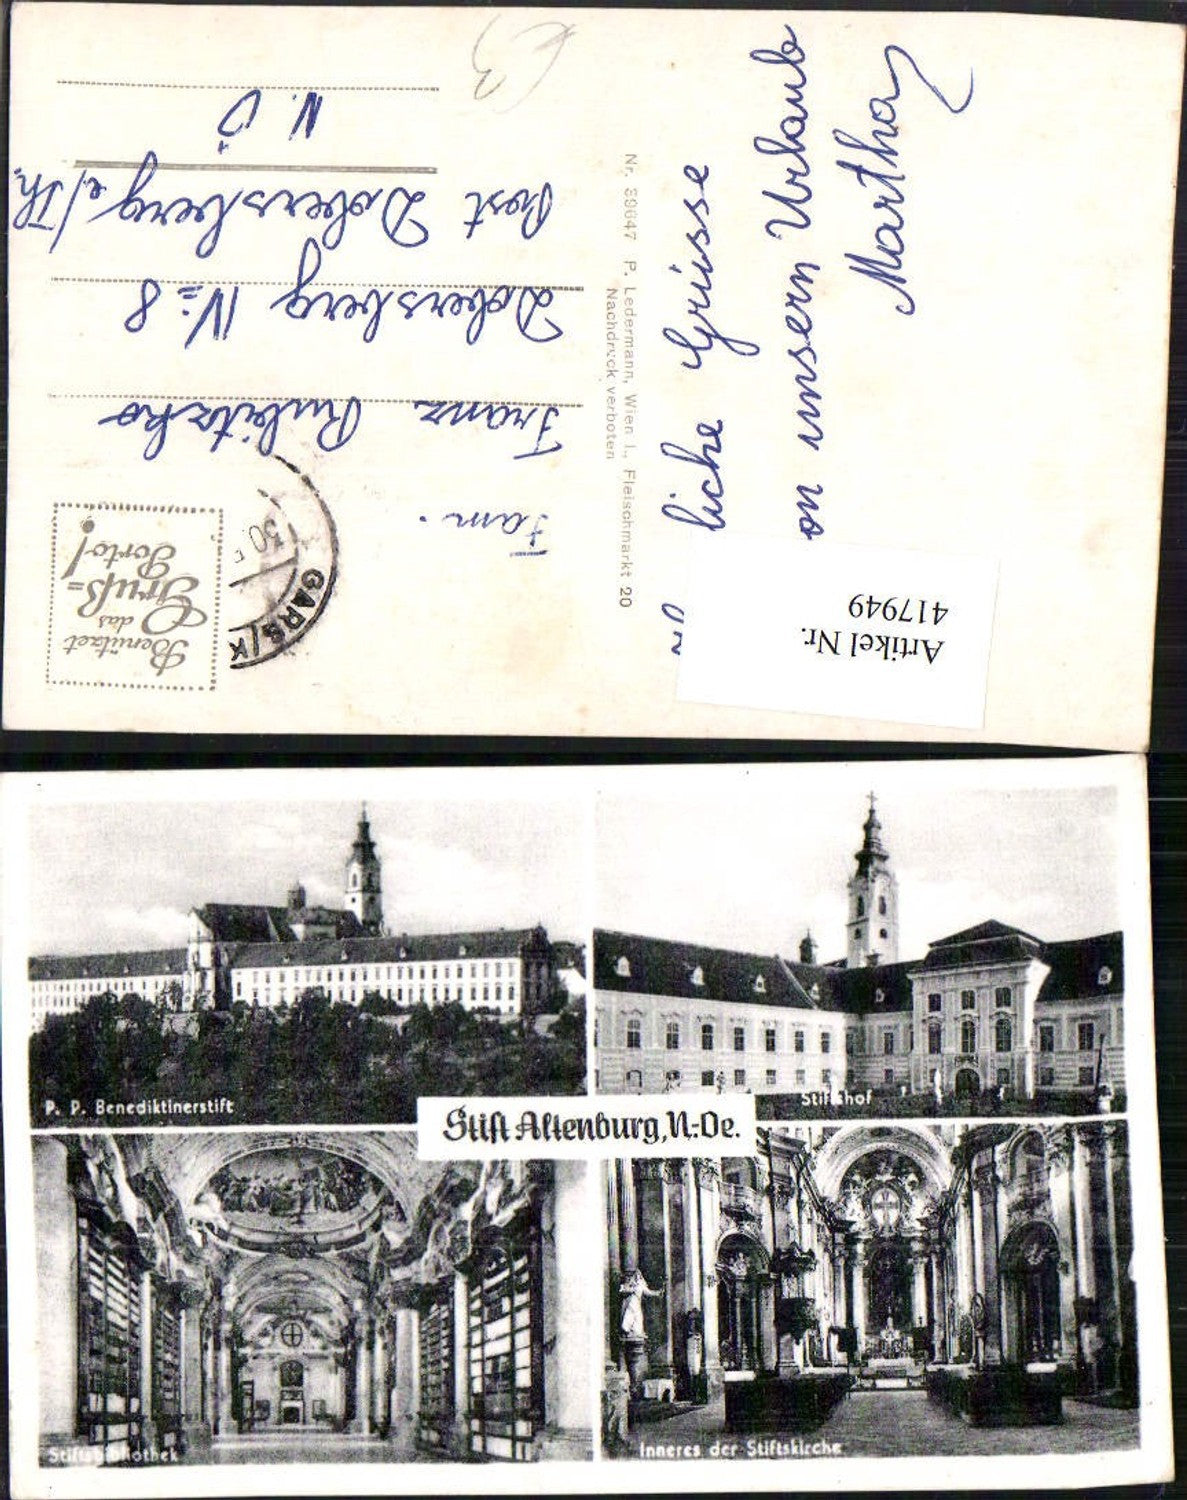 Benützet
das
Gruß=
Porto!
GARS/K
30.
Fam.
Franz Rubitzko
Dobersberg Nº 8
Post Dobersberg a./Th.
N.Ö
Nr. 39647 P. Ledermann, Wien I., Fleischmarkt 20
Nachdruck verboten
liche Grüsse
on unsern Urlaub
Martha
Artikel Nr.
417949
P. P. Benediktinerstift
Stiftshof
Stift Altenburg, N.-Oe.
Stiftsbibliothek
Inneres der Stiftskirche